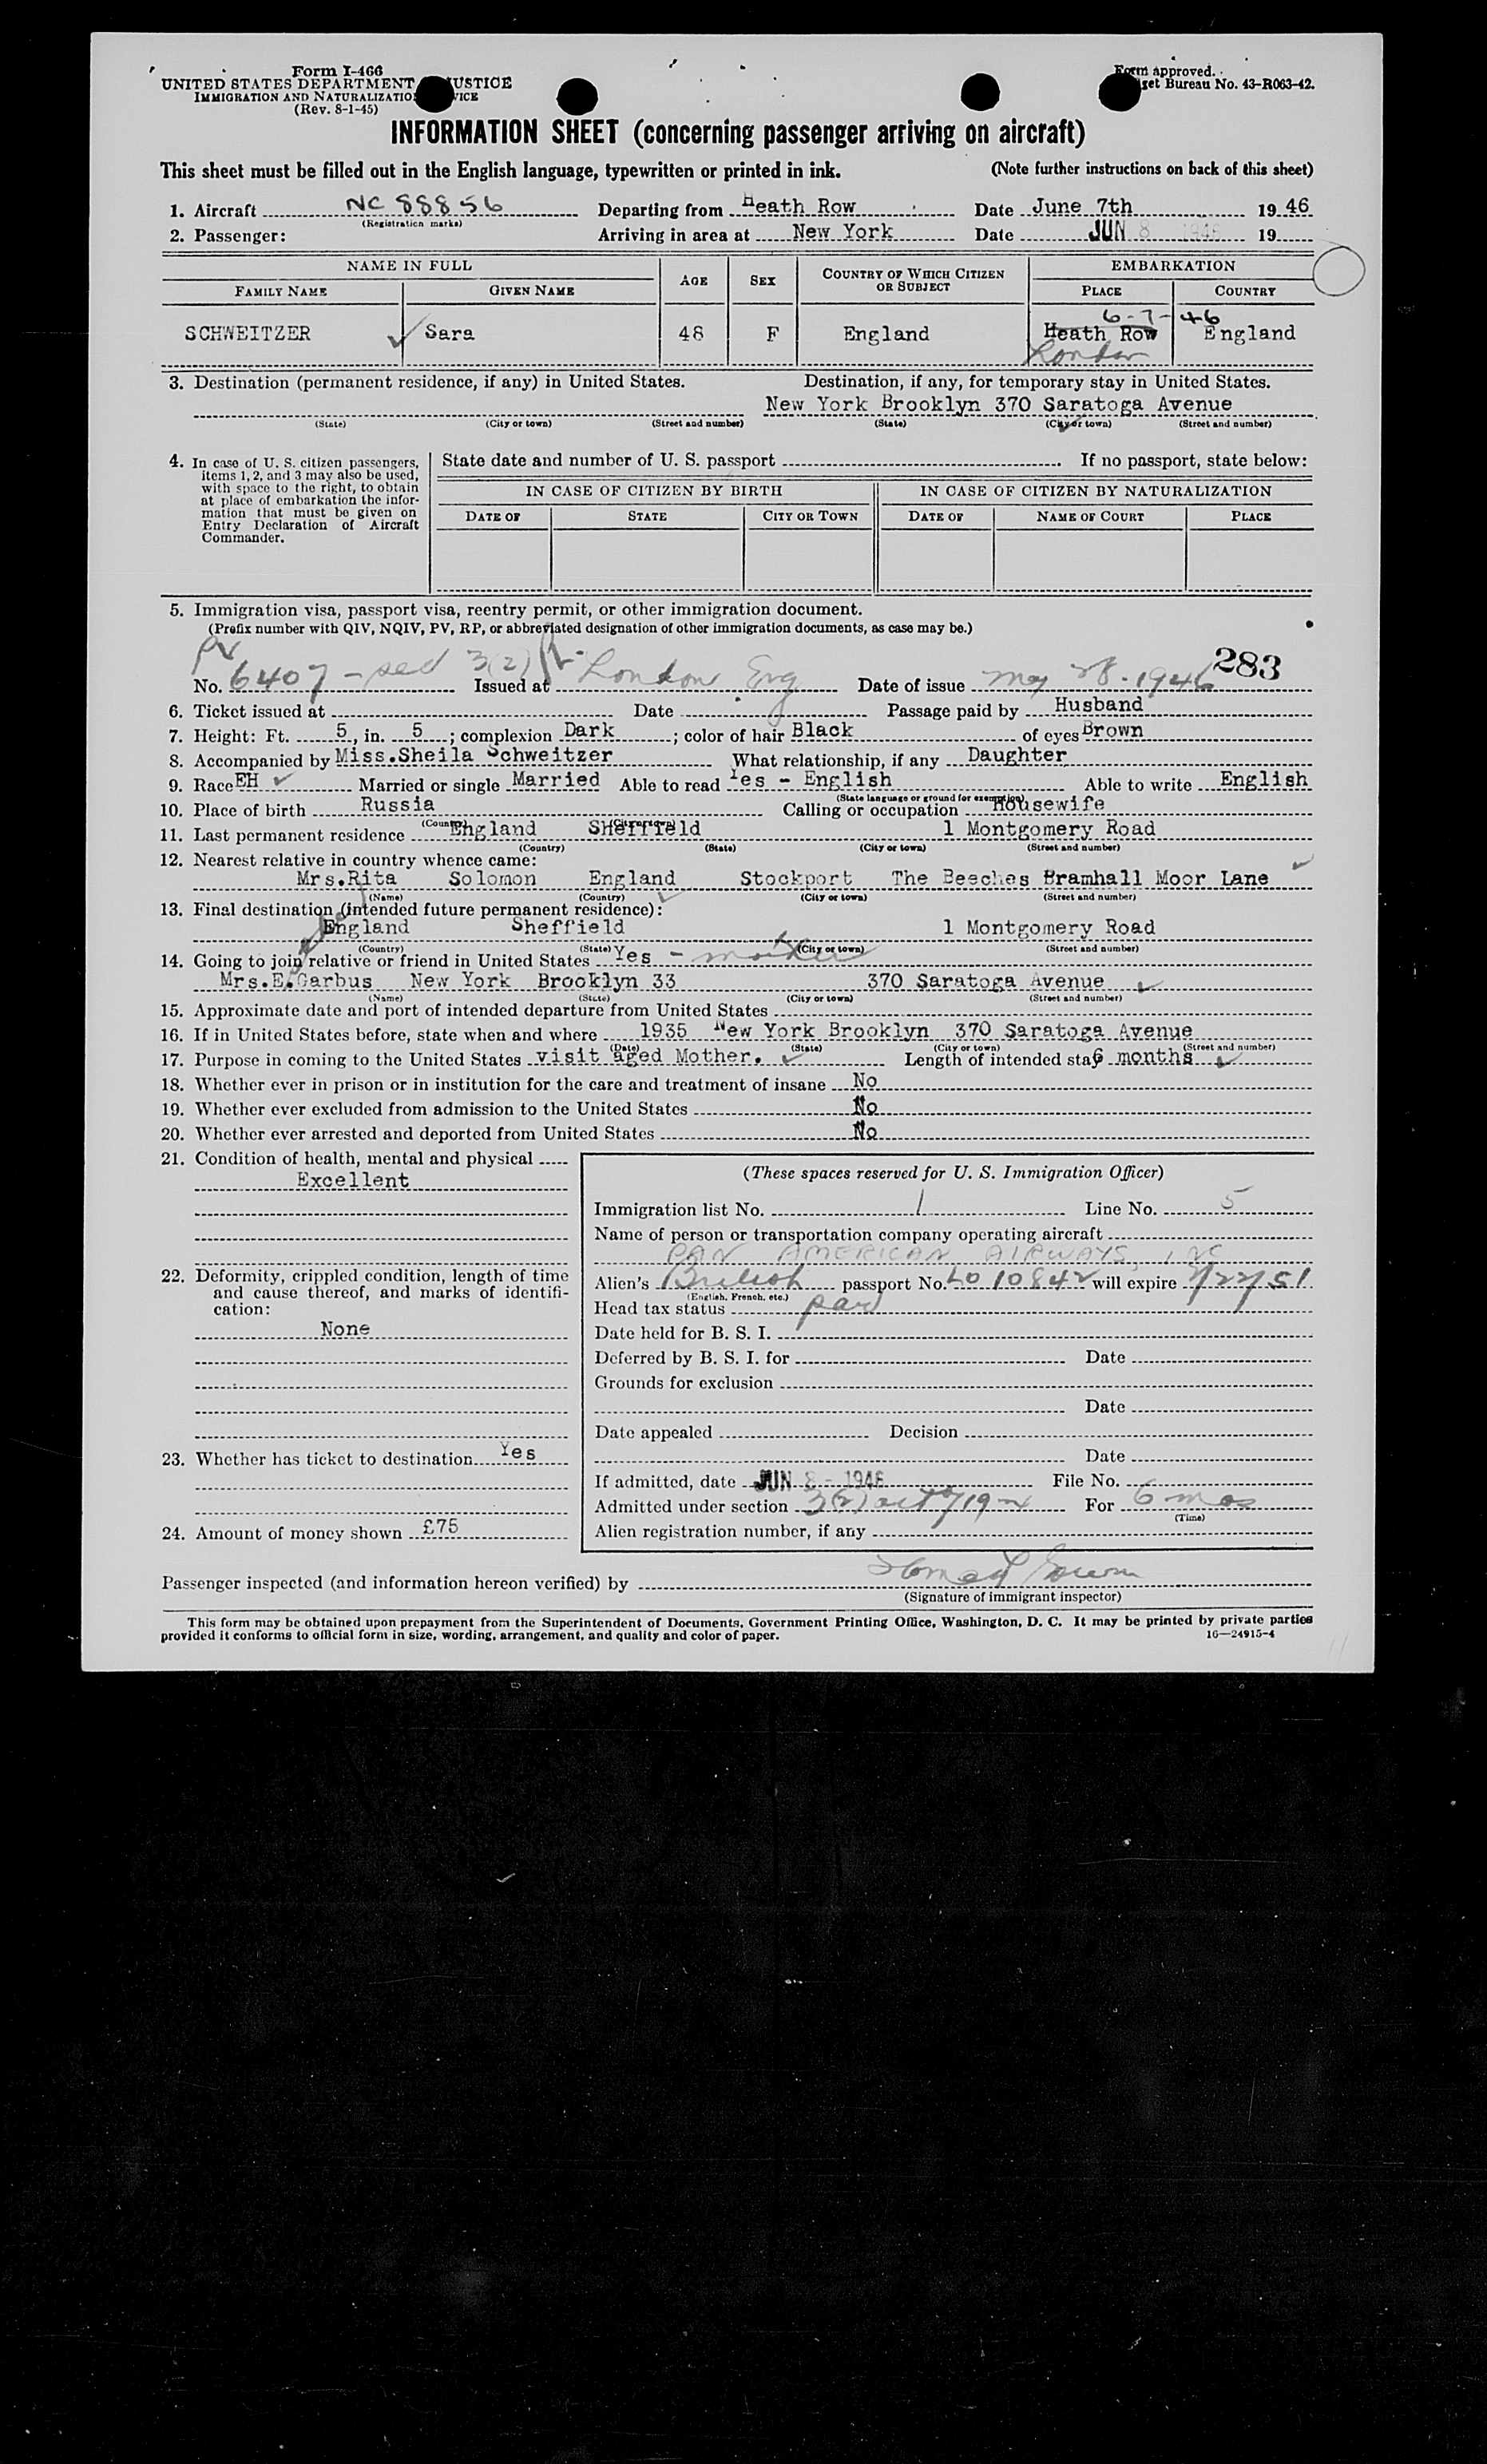 Form I-466
UNITED STATES DEPARTMENT JUSTICE
IMMIGRATION AND NATURALIZATION SERVICE
(Rev. 8-1-45)
Form approved.
Budget Bureau No. 43-R063-42.
INFORMATION SHEET (concerning passenger arriving on aircraft)
This sheet must be filled out in the English language, typewritten or printed in ink. (Note further instructions on back of this sheet)
1. Aircraft NC 88856 Departing from Heath Row Date June 7th 1946
(Registration marks)
2. Passenger: Arriving in area at New York Date JUN 8 1946 19
NAME IN FULL AGE SEX COUNTRY OF WHICH CITIZEN OR SUBJECT EMBARKATION
FAMILY NAME GIVEN NAME PLACE COUNTRY
6-7-46
SCHWEITZER Sara 48 F England Heath Row England
London
3. Destination (permanent residence, if any) in United States. Destination, if any, for temporary stay in United States.
New York Brooklyn 370 Saratoga Avenue
(State) (City or town) (Street and number) (State) (City or town) (Street and number)
4. In case of U. S. citizen passengers, items 1, 2, and 3 may also be used, with space to the right, to obtain at place of embarkation the information that must be given on Entry Declaration of Aircraft Commander.
State date and number of U. S. passport If no passport, state below:
IN CASE OF CITIZEN BY BIRTH IN CASE OF CITIZEN BY NATURALIZATION
DATE OF STATE CITY OR TOWN DATE OF NAME OF COURT PLACE
5. Immigration visa, passport visa, reentry permit, or other immigration document.
(Prefix number with QIV, NQIV, PV, RP, or abbreviated designation of other immigration documents, as case may be.)
PV
283
No. 6407 - sec 3(2) Issued at London Eng Date of issue May 28 - 1946
6. Ticket issued at Date Passage paid by Husband
7. Height: Ft. 5, in. 5; complexion Dark; color of hair Black of eyes Brown
8. Accompanied by Miss.Sheila Schweitzer What relationship, if any Daughter
9. Race EH Married or single Married Able to read Yes - English Able to write English
(State language or ground for exemption)
10. Place of birth Russia Calling or occupation Housewife
(Country) (City or town)
11. Last permanent residence England Sheffield 1 Montgomery Road
(Country) (State) (City or town) (Street and number)
12. Nearest relative in country whence came:
Mrs.Rita Solomon England Stockport The Beeches Bramhall Moor Lane
(Name) (Country) (City or town) (Street and number)
13. Final destination (intended future permanent residence):
England Sheffield 1 Montgomery Road
(Country) (State) (City or town) (Street and number)
14. Going to join relative or friend in United States Yes - mother
Mrs.E.Garbus New York Brooklyn 33 370 Saratoga Avenue
(Name) (State) (City or town) (Street and number)
15. Approximate date and port of intended departure from United States
16. If in United States before, state when and where 1935 New York Brooklyn 370 Saratoga Avenue
(Date) (State) (City or town) (Street and number)
17. Purpose in coming to the United States visit aged Mother. Length of intended stay 6 months
18. Whether ever in prison or in institution for the care and treatment of insane No
19. Whether ever excluded from admission to the United States No
20. Whether ever arrested and deported from United States No
21. Condition of health, mental and physical
Excellent
22. Deformity, crippled condition, length of time and cause thereof, and marks of identification:
None
23. Whether has ticket to destination Yes
24. Amount of money shown £75
(These spaces reserved for U. S. Immigration Officer)
Immigration list No. 1 Line No. 5
Name of person or transportation company operating aircraft
PAN AMERICAN AIRWAYS, INC
Alien's British passport No. LO 10842 will expire
(English, French, etc.)
Head tax status
Date held for B. S. I.
Deferred by B. S. I. for Date
Grounds for exclusion
Date
Date appealed Decision
Date
If admitted, date JUN 8 - 1946 File No.
Admitted under section 3(2) act For 6 mos
(Time)
Alien registration number, if any
Passenger inspected (and information hereon verified) by
(Signature of immigrant inspector)
This form may be obtained upon prepayment from the Superintendent of Documents, Government Printing Office, Washington, D. C. It may be printed by private parties
provided it conforms to official form in size, wording, arrangement, and quality and color of paper. 16—24915-4